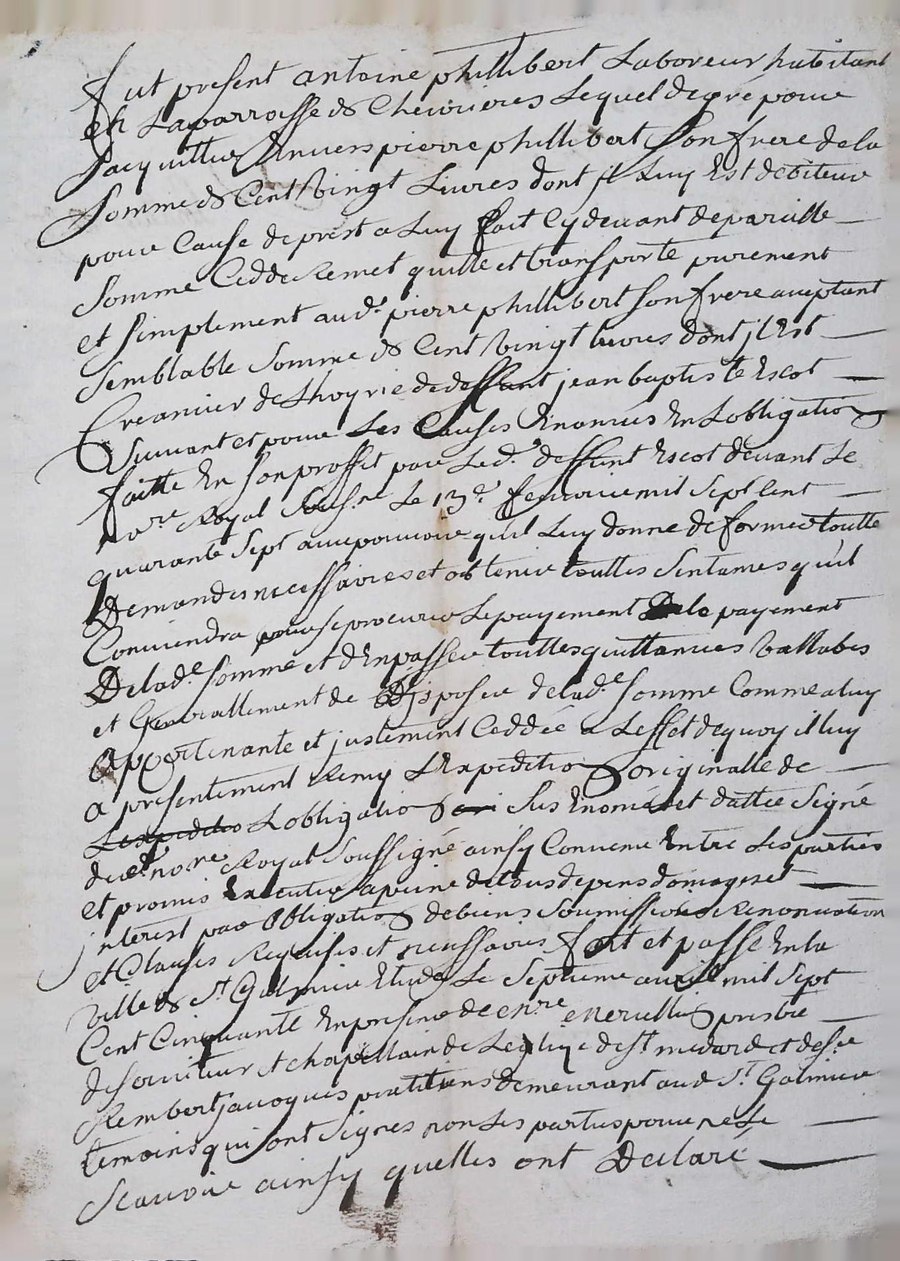 fut present antoine phillibert Laboreur habitant
en Laparroisse de Chevrieres Lequel degré pour
Sacquitter Envers pierre phillibert Son frere de la
Somme de Cent Vingt Livres dont jl Luy Est debiteur
pour Cause de prest a Luy fait Cy devant de pareille
Somme Cedde Remet quitte et transporte purement
et simplement aud.t pierre phillibert Son frere acceptant
Semblable Somme de Cent Vingt livres dont jl Est
Creancier de Lhoyrie de deffunt jean baptiste Escot
Suivant et pour Les Causes Enoncées En Lobligation
faitte En Son proffit par Led.t deffunt Escot devant Le
no.re Royal Sous.né Le 13.e fevrier mil Sept Cent
quarante Sept avec pouvoir quil Luy donne de former toutte
Demandes necessaires et obtenir touttes Sentances quil
Conviendra pour Se procurer Le payement De la payement
De lad.e Somme et d'En passer touttes quittances Vallables
et Generallement de Disposer de lad.e Somme Comme a luy
Apartenante et justement Ceddée a Leffet de quoy il luy
a presentement Remy LExpedition originalle de
Lexpeditio Lobligation Sus Enoncée et dattée Signé
dud.t no.re Royal Soussigné ainsy Convenu Entre Les parties
et promis Executer a peine de tous depens domages et
jnterest par Obligation de biens Soumissions Renonciation
et Clauses Requises et necessaires fait et passé En la
ville de S.t Galmier Etude Le Septieme avril mil Sept
Cent Cinquante En presence de
deserviteur et chapellain de Leglise de S.t medard et de S.r
Rembert jacoques pratitiens demeurant aud. S.t Galmier
temoins qui ont Signes non Les parties pour ne Le
Scavoir ainsy quelles ont Declaré